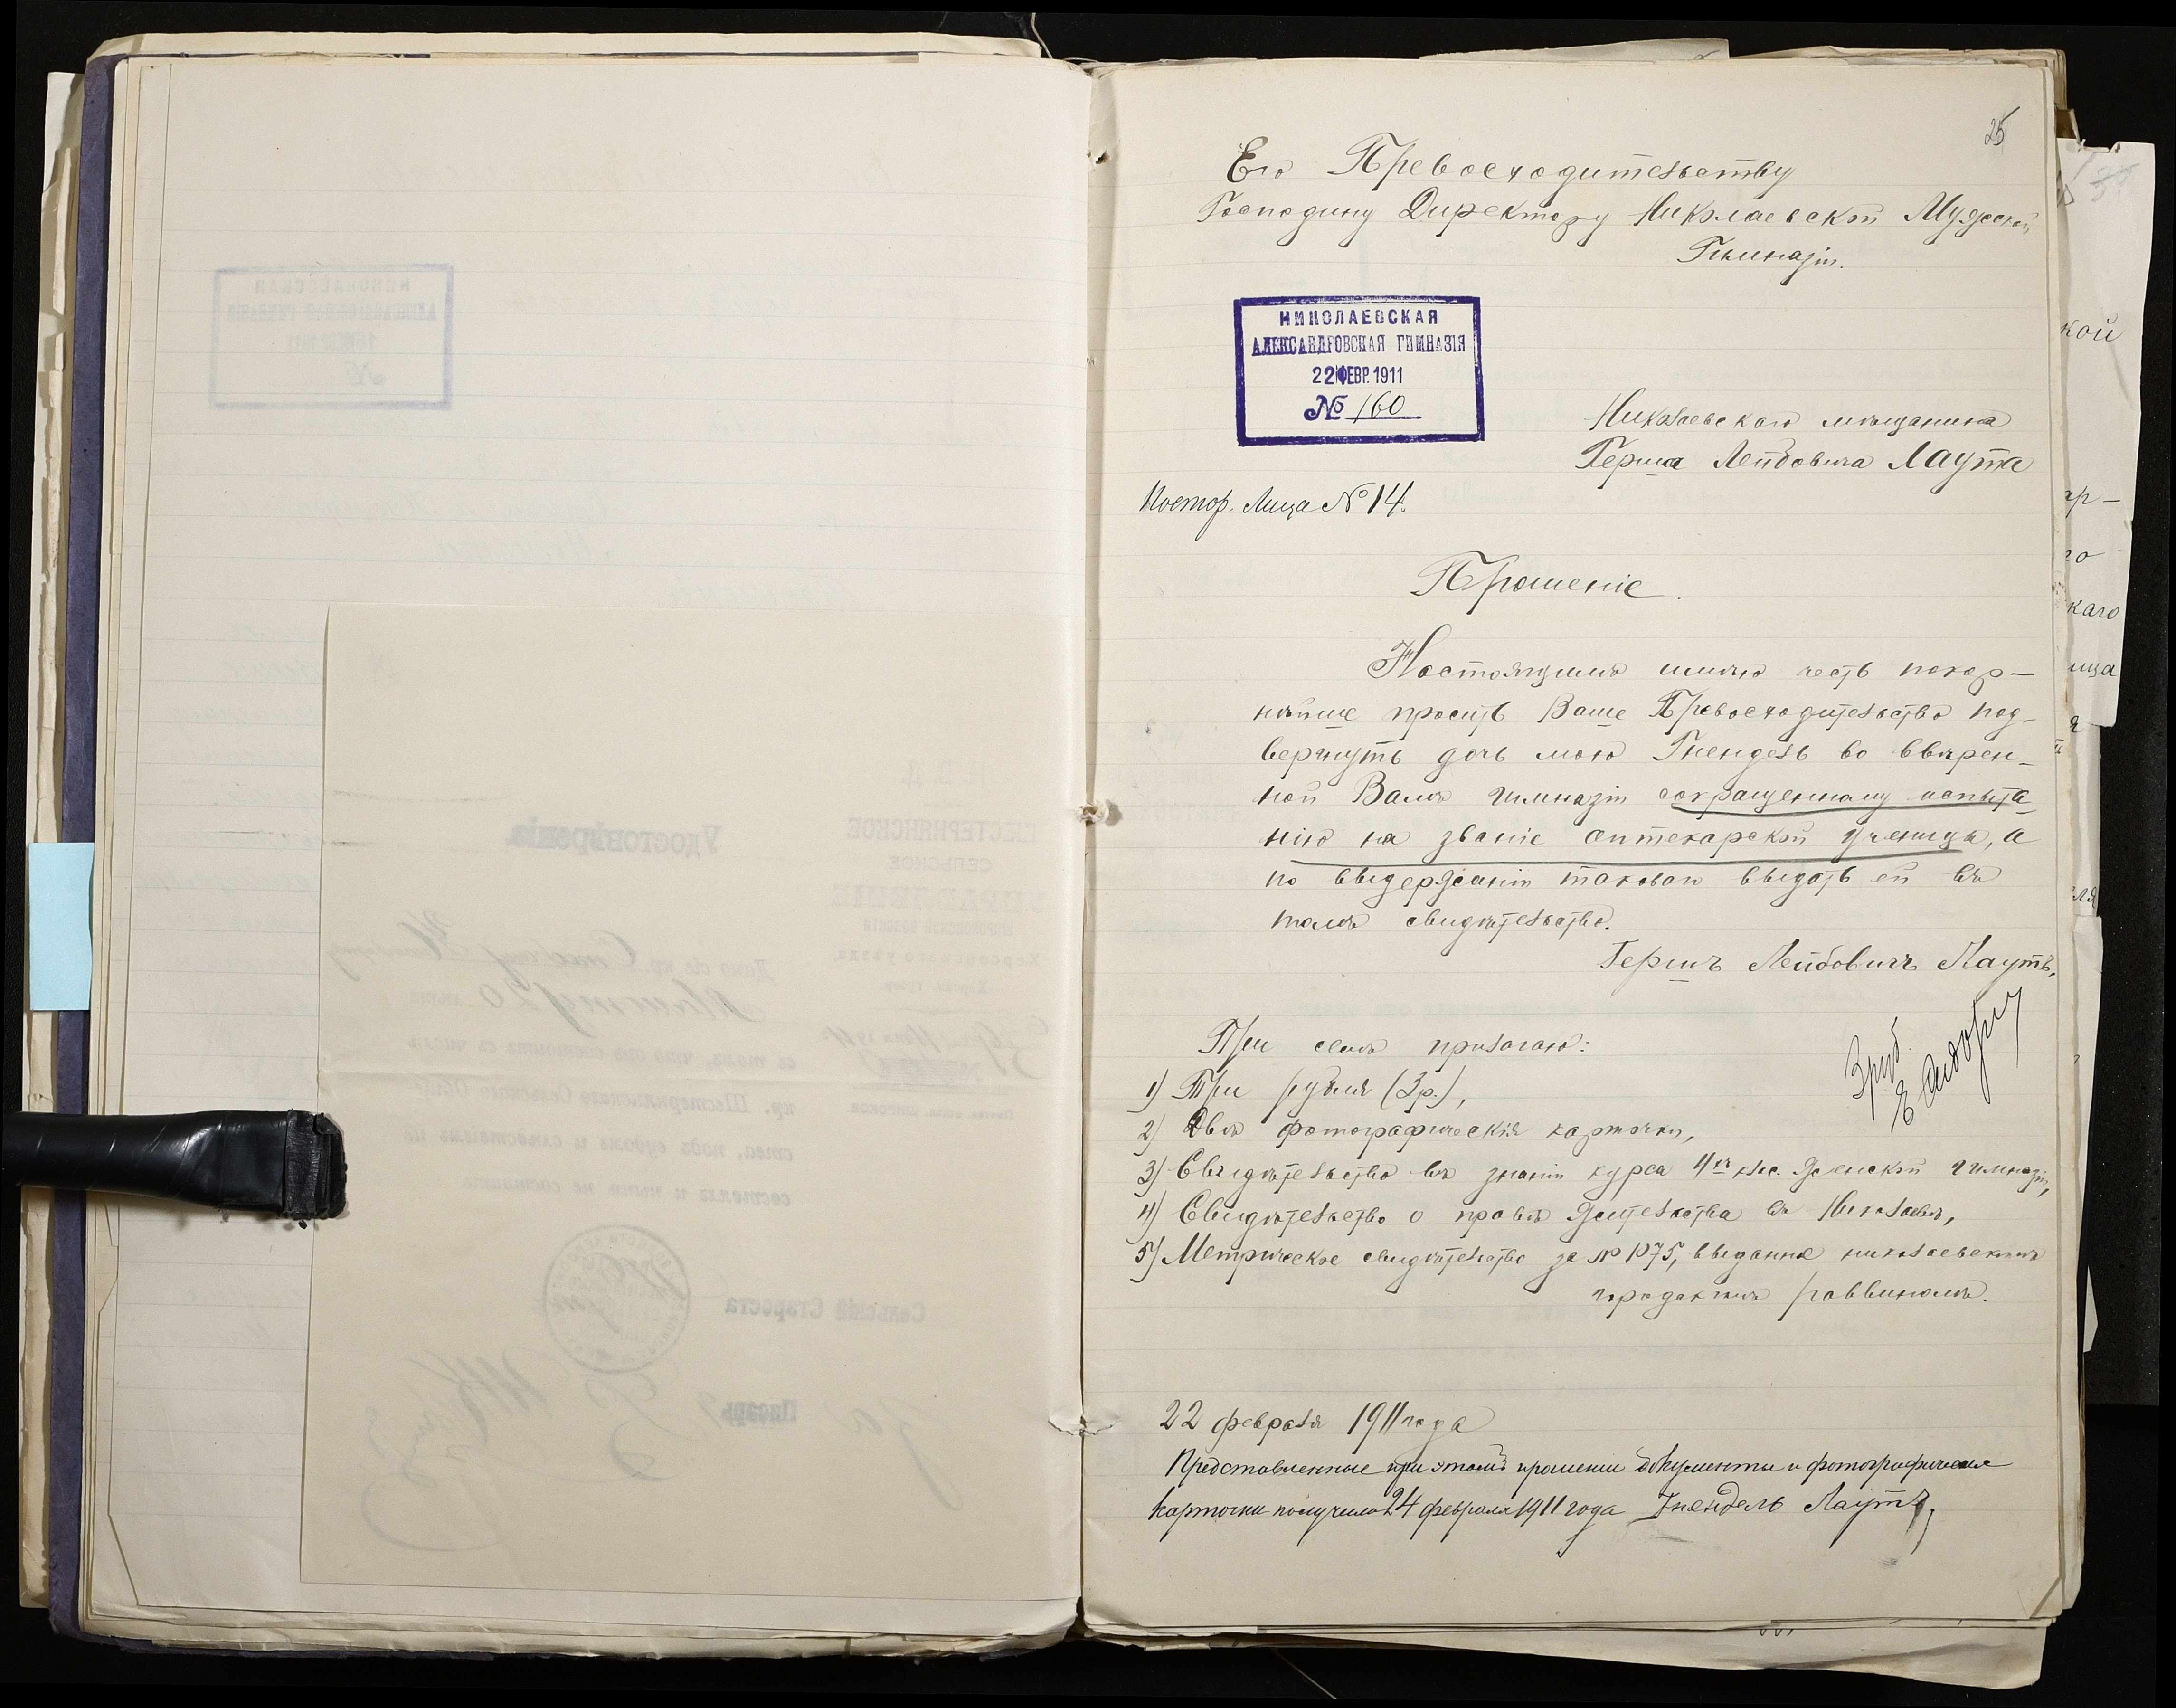 25
Его Превосходительству
Господину Директору Николаевской Мужской
Гимназіи.
НИКОЛАЕВСКАЯ
АЛЕКСАНДРОВСКАЯ ГИМНАЗІЯ
22 ФЕВР. 1911
№ 160
Николаевскаго мѣщанина
Герша Лейбовича Лаута
Постор. Лица № 14.
Прошеніе.
Настоящимъ имѣю честь покор-
нѣйше просить Ваше Превосходительство под-
вергнуть дочь мою Гнендель во ввѣрен-
ной Вамъ гимназіи сокращенному испыта-
нію на званіе аптекарской ученицы, а
по выдержаніи таковаго выдать ей въ
томъ свидѣтельство.
Гершъ Лейбовичъ Лаутъ,
При семъ прилагаю:
3 руб.
1) Три рубля (3 р.),
2) Двѣ фотографическія карточки,
3) Свидѣтельство въ знаніи курса 4хъ клас. женской гимназіи,
4) Свидѣтельство о правѣ жительства въ Николаевѣ,
5) Метрическое свидѣтельство за № 1075, выданное николаевскимъ
городскимъ раввиномъ.
22 февраля 1911 года
Представленные при этомъ прошении документы и фотографическия
карточки получила 24 февраля 1911 года Гнендель Лаутъ,
кой
ар-
го
каго
ица
Удостовѣреніе
ШЕСТЕРНЯНСКОЕ
СЕЛЬСКОЕ
УПРАВЛЕНІЕ
Херсонскаго уѣзда,
Дано сіе кр.
въ томъ, что онъ состоитъ въ числѣ
кр. Шестернянскаго Сельскаго Обще-
ства, подъ судомъ и слѣдствіемъ не
состоялъ и нынѣ не состоитъ
Сельскій Староста
Писарь